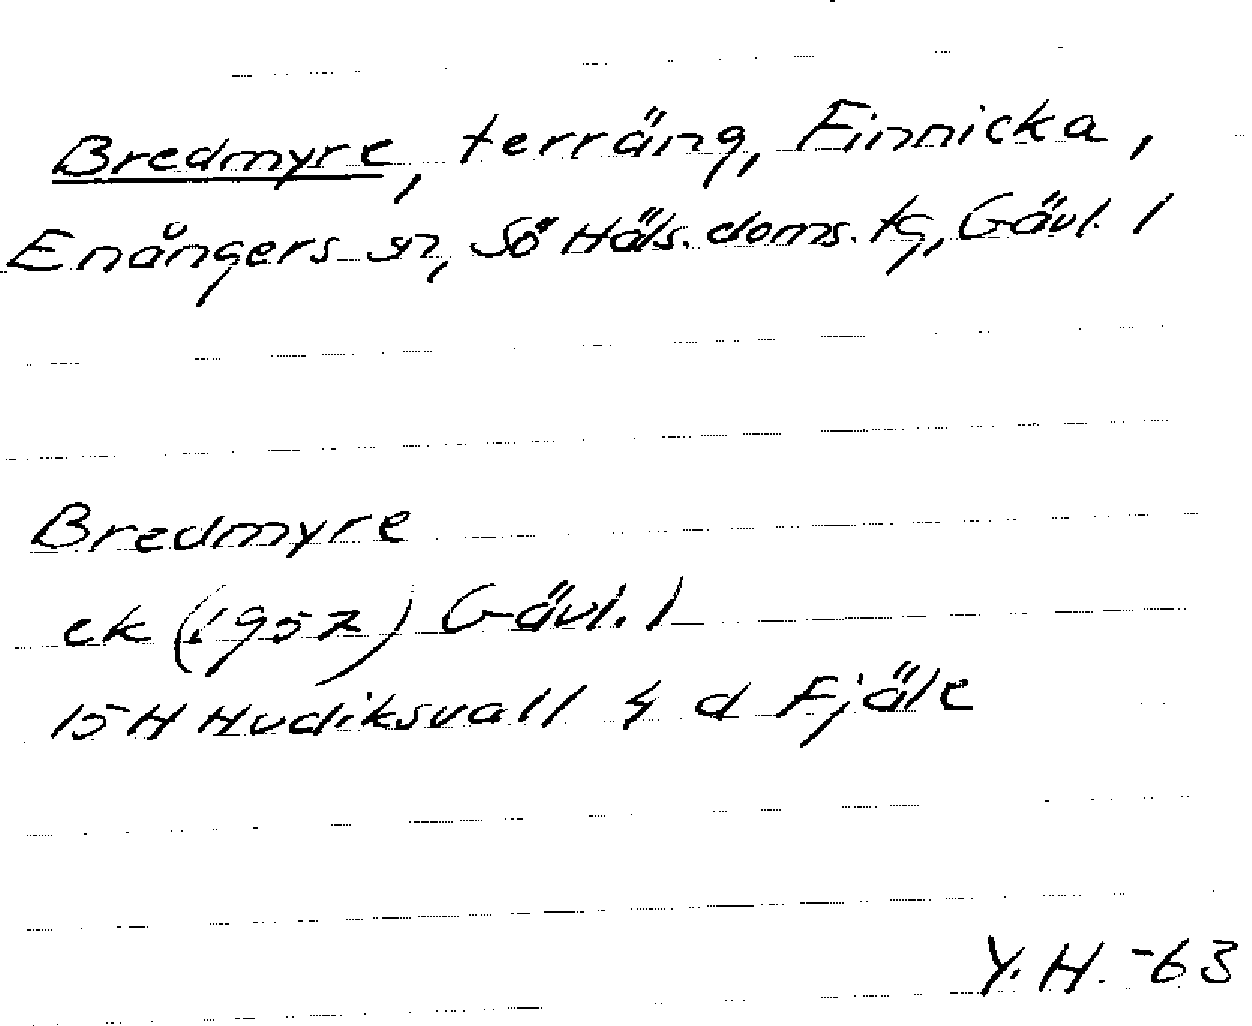 Bredmyre, terräng, Finnicka,
Enångers sn, Sö Häls. doms. tg, Gävl. l
Bredmyre
ek (1952) Gävl. l
15H Hudiksvall 4 d Fjäle
Y.H. -63